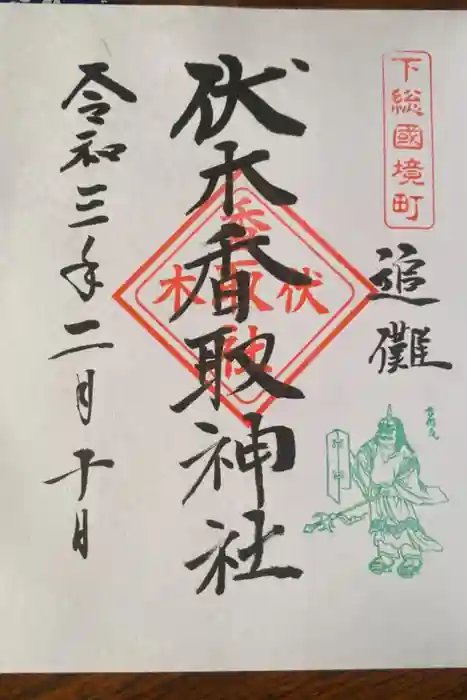 下総國境町
追儺
方相氏
伏木香取神社
伏木
香取社
令和三年二月十日